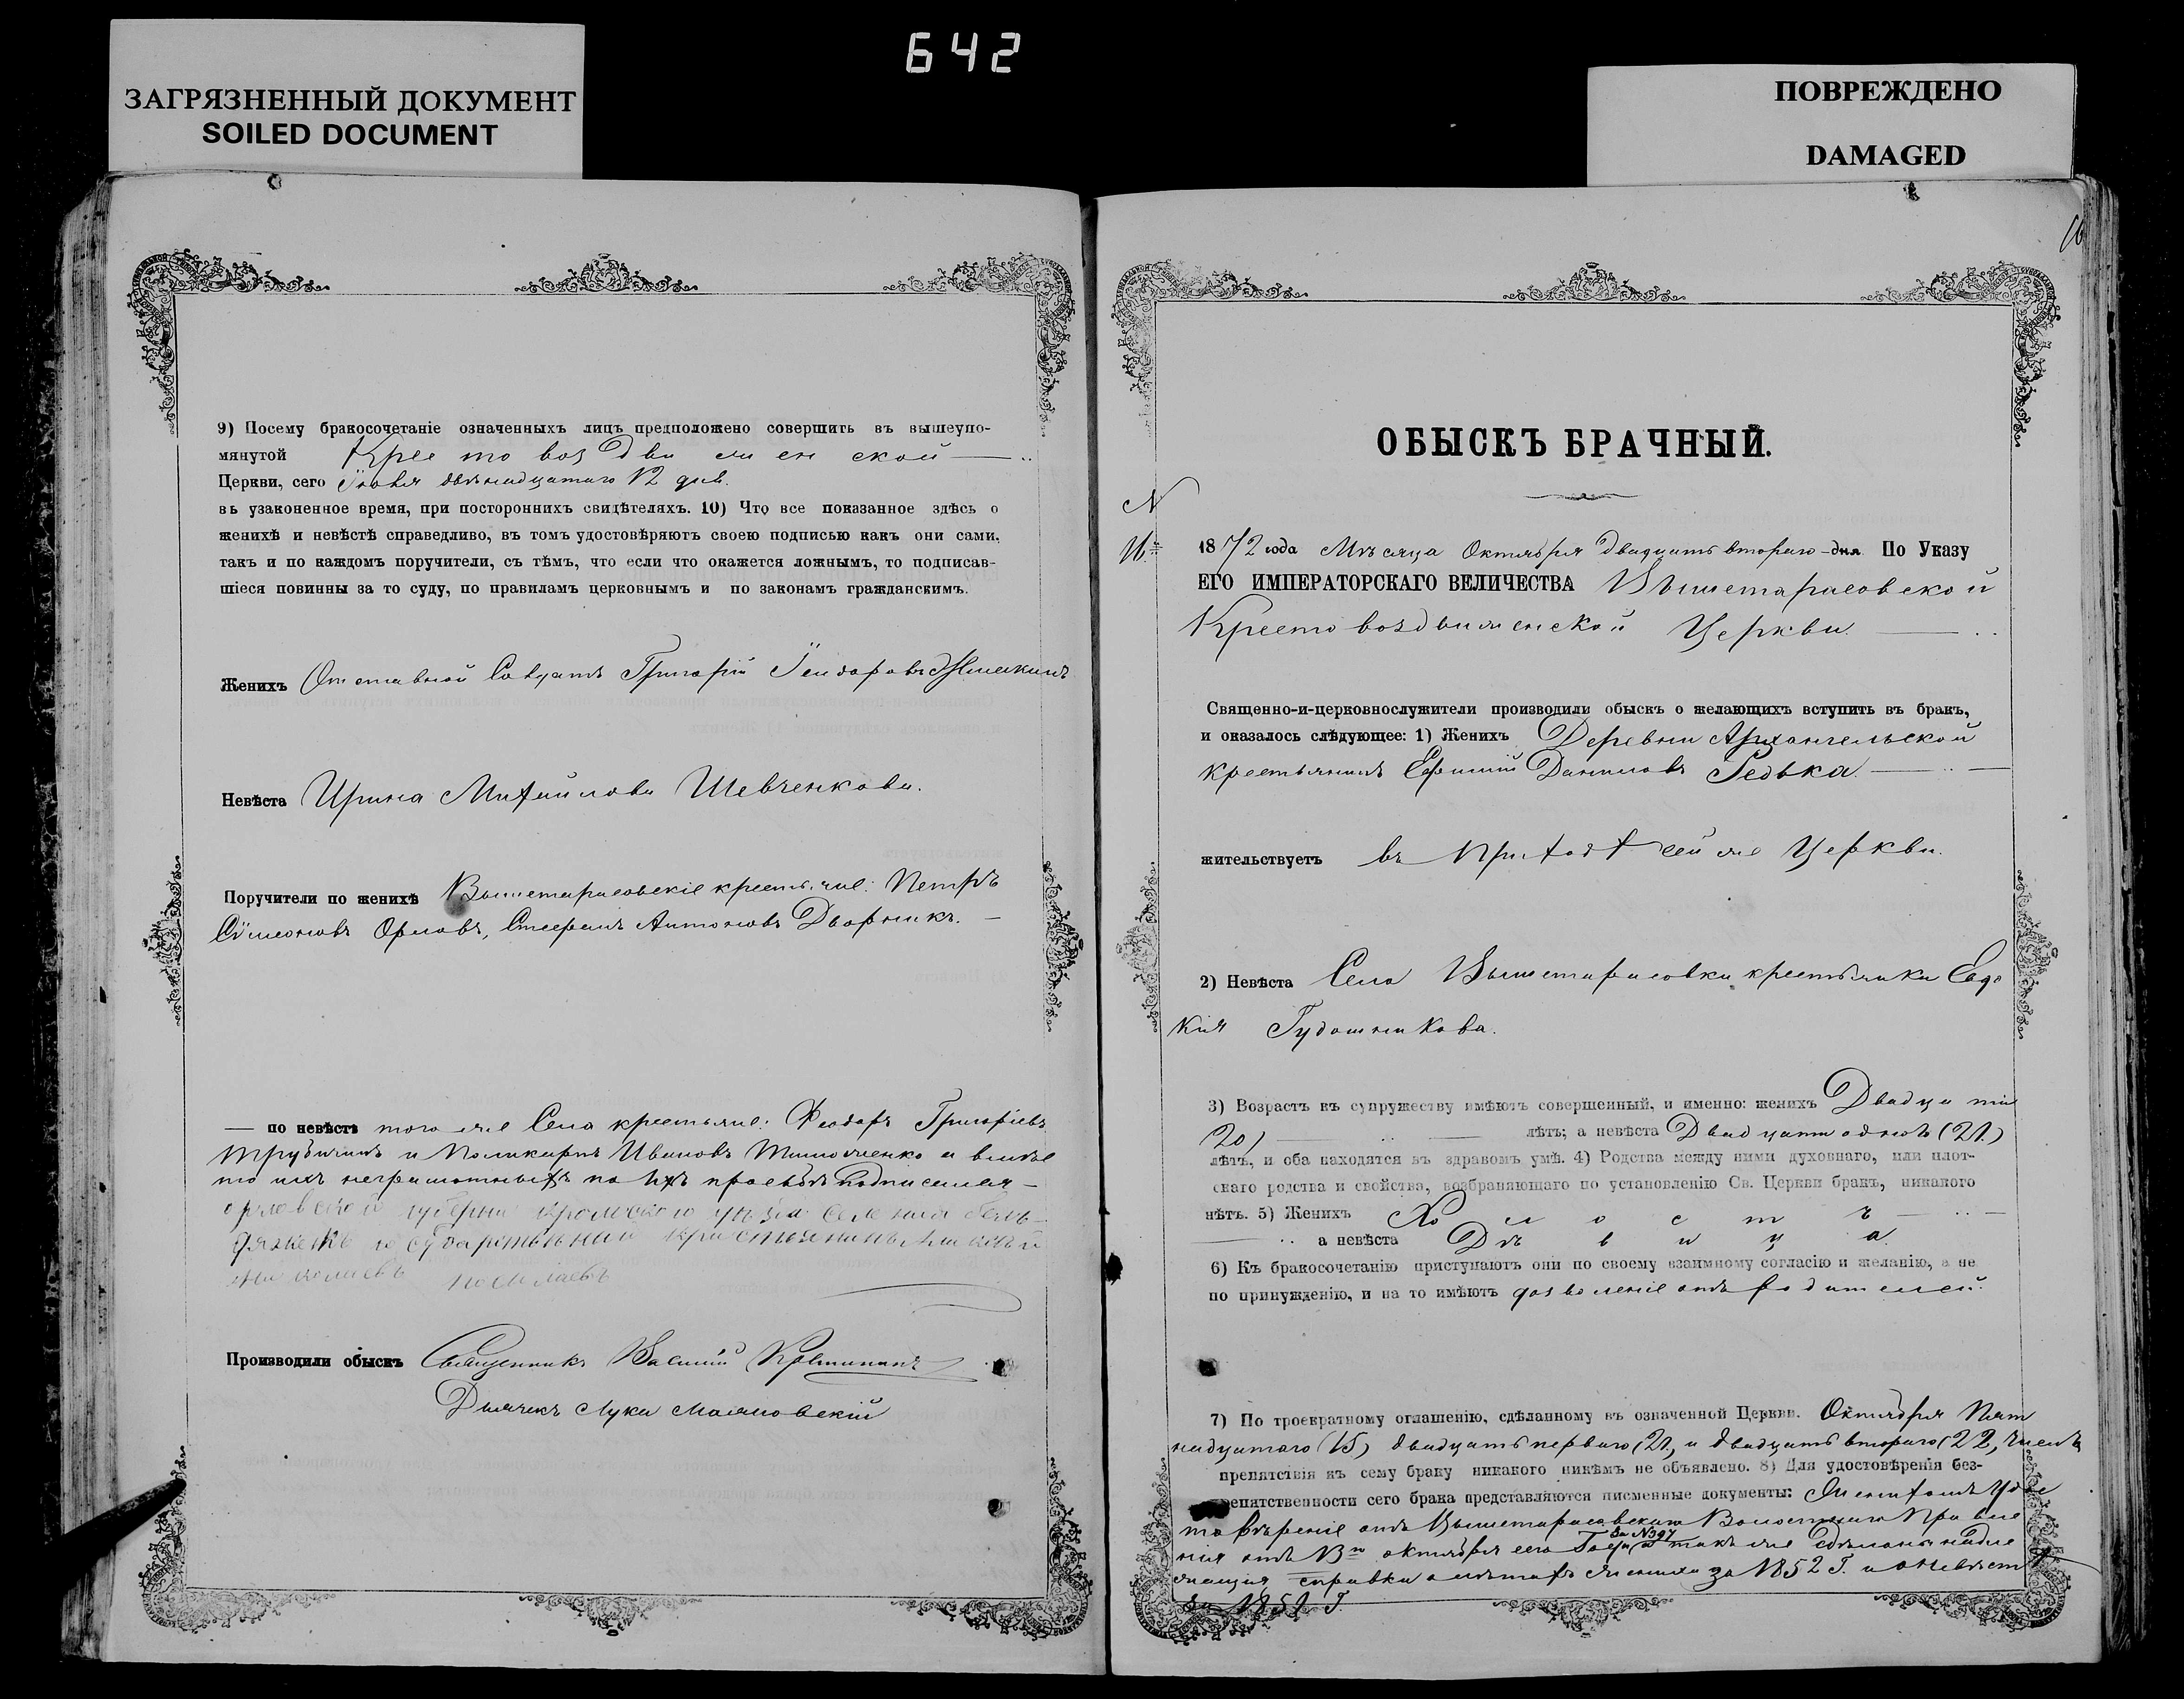 642
ЗАГРЯЗНЕННЫЙ ДОКУМЕНТ
SOILED DOCUMENT
ПОВРЕЖДЕНО
DAMAGED
9) Посему бракосочетаніе означенныхъ лицъ предположено совершить въ вышеупо-
мянутой Крестовоздвиженской
Церкви, сего Іюня двѣнадцатаго 12 дня.
въ узаконенное время, при постороннихъ свидѣтеляхъ. 10) Что все показанное здѣсь о
женихѣ и невѣстѣ справедливо, въ томъ удостовѣряютъ своею подписью какъ они сами,
такъ и по каждомъ поручители, съ тѣмъ, что если что окажется ложнымъ, то подписав-
шіеся повинны за то суду, по правиламъ церковнымъ и по законамъ гражданскимъ.
Женихъ Отставной Солдатъ Григорій
Невѣста Ирина Михайлова Шевченкова.
Поручители по женихѣ Вышетарасовскіе крестьяне: Петръ
Сѵмеоновъ Орловъ, Стефанъ Антоновъ Дворникъ. —
— по невѣстѣ того же Села крестьяне: Ѳеодоръ Григоріевъ
и Поликарпъ Ивановъ Тимошенко а вмѣсто
ихъ неграмотныхъ по ихъ прозьбѣ подписался
орловской губерни кромскаго уѣзда
государственный кристьянинъ
Производили обыскъ Священникъ Василій
Дьячекъ Лука
16
ОБЫСКЪ БРАЧНЫЙ.
N
16.
1872 года Мѣсяца Октября двадцать втораго дня. По Указу
ЕГО ИМПЕРАТОРСКАГО ВЕЛИЧЕСТВА Вышетарасовской
Крестовоздвиженской Церкви.
Священно-и-церковнослужители производили обыскъ о желающихъ вступить въ бракъ,
и оказалось слѣдующее: 1) Женихъ Деревни Архангельской
крестьянинъ Ефимій Даниловъ Редька.
жительствуетъ въ приходѣ сей же Церкви.
2) Невѣста Села Вышетарасовки крестьянка Евдо
кия Гудошникова.
3) Возрастъ къ супружеству имѣютъ совершенный, и именно: женихъ Двадцати
20) лѣтъ; а невѣста Двадцати одного (21.)
лѣтъ, и оба находятся въ здравомъ умѣ. 4) Родства между ними духовнаго, или плот-
скаго родства и свойства, возбраняющаго по установленію Св. Церкви бракъ, никакого
нѣтъ. 5) Женихъ Холостъ
а невѣста Дѣвица
6) Къ бракосочетанію приступаютъ они по своему взаимному согласію и желанію, а не
по принужденію, и на то имѣютъ дозволеніе отъ родителей.
7) По троекратному оглашенію, сдѣланному въ означенной Церкви. Октября Пят
надцатаго (15) двадцать перваго (21, и двадцать втораго (22, числъ
препятствія къ сему браку никакого никѣмъ не объявлено. 8) Для удостовѣренія без-
репятственности сего брака представляются писменные документы: Женихомъ Удос
товѣреніе отъ Вышетарасовскаго Волостнаго Правле
нія отъ 13го октября сего Года за №397 также сдѣланы надле
жащія справки о лѣтахъ жениха за 1852 Г. и о невѣстѣ
за 1851 Г.